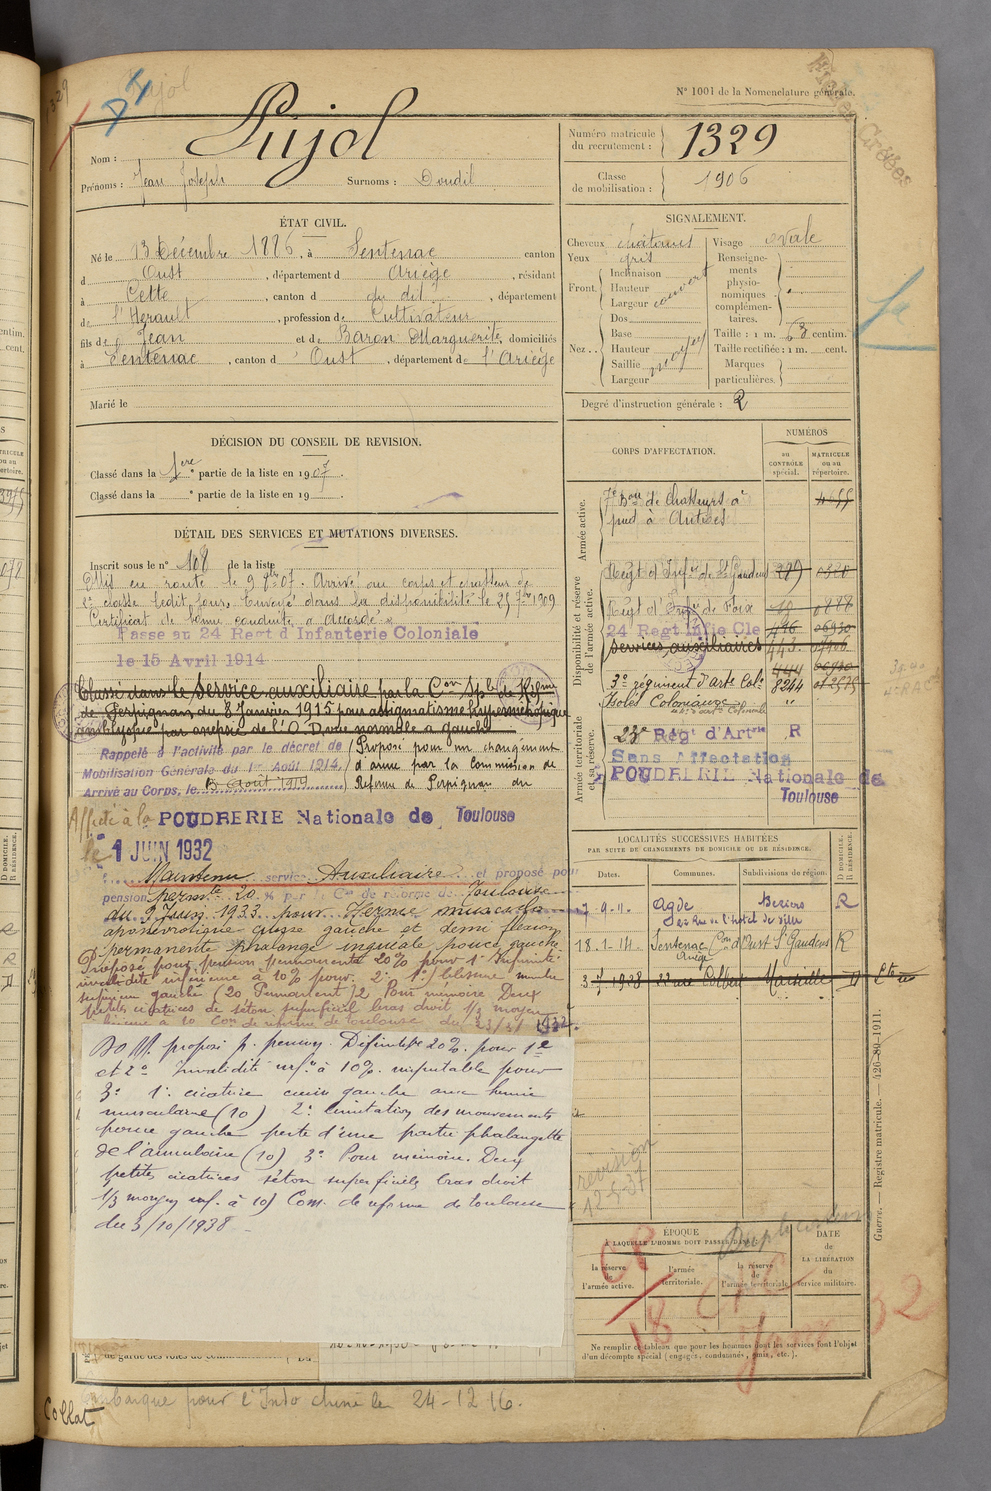 N° 1001 de la Nomenclature générale.
Nom : Pujol
Prénoms : Jean Joseph Surnoms : Doudil
Numéro matricule du recrutement : 1329
Classe de mobilisation : 1906
ÉTAT CIVIL.
Né le 13 Décembre 1886, à Sentenac canton
d Oust, département d Ariège, résidant
à Cette, canton d du dit, département
de l'Hérault, profession de Cultivateur
fils de Jean et de Baron Marguerite, domiciliés
à Sentenac, canton d' Oust, département de l'Ariège
Marié le
SIGNALEMENT.
Cheveux châtains
Yeux gris
Front. Inclinaison
Hauteur
Largeur couvert
Nez.. Dos
Base
Hauteur
Saillie moyen
Largeur
Visage ovale
Renseignements physionomiques complémentaires.
Taille : 1 m. 63 centim.
Taille rectifiée : 1 m. cent.
Marques particulières.
Degré d'instruction générale : 2
DÉCISION DU CONSEIL DE REVISION.
Classé dans la 1ère partie de la liste en 1907.
Classé dans la e partie de la liste en 19 .
DÉTAIL DES SERVICES ET MUTATIONS DIVERSES.
Inscrit sous le n° 108 de la liste
Mis en route le 9 8bre 07. Arrivé au corps et chasseur de
2e classe ledit jour. Envoyé dans la disponibilité le 25 7bre 1909
Certificat de bonne conduite a accordé
Passe au 24 Regt d'Infanterie Coloniale
le 15 Avril 1914
Classé dans le Service auxiliaire par la Con Sple de Réfme
de Perpignan du 8 Janvier 1915 pour astigmatisme hypermétropique
amblyopie par anopsie de l'O.D. vue normale a gauche
Rappelé à l'activité par le décret de
Mobilisation Générale du 1er Août 1914.
Arrivé au Corps, le 13 Août 1914
Proposé pour un changement
d'arme par la Commission de
Réforme de Perpignan du
Affecté à la POUDRERIE Nationale de Toulouse
le 1 JUIN 1932
Maintenu service Auxiliaire et proposé pour
pension permte 20 % par Con de réforme de Toulouse
du 9 Juin 1933 pour Hernie musculo
aponévrotique cuisse gauche et demi flexion
permanente phalange unguéale pouce gauche
Proposé pour pension permanente 20% pour 1° infirmité
invalidité inférieure à 10% pour 2°
supérieur gauche (20 Permanent) 2° Pour mémoire. Deux
petites cicatrices de séton superficiel bras droit 1/3 moyen
inférieure à 10 Com de réforme de Toulouse du
proposé p. pension Définitive 20% pour 1°
et 2° Invalidité inf.re à 10% imputable pour
3° 1° cicatrice cuisse gauche avec hernie
musculaire (10) 2° limitation des mouvements
pouce gauche perte d'une partie phalangette
de l'annulaire (10) 3° Pour mémoire. Deux
petites cicatrices séton superficiels bras droit
1/3 moyen inf. à 10) Com. de réforme de Toulouse
du 3/10/1938
Embarqué pour l'Indo chine le 24-12-16.
Collat
CORPS D'AFFECTATION.
NUMÉROS
au CONTRÔLE spécial.
MATRICULE ou au répertoire.
Armée active.
7e Bon de Chasseurs à
pied à Antibes
Disponibilité et réserve de l'armée active.
Regt d'Infie de St Gaudens
Regt d'Infie de Foix
24 Regt Infie Cle
Services auxiliaires
3e régiment d'arte Cole
Isolés Coloniaux
Armée territoriale et sa réserve.
23e Reg' d'Artrie R
Sans Affectation
POUDRERIE Nationale de
Toulouse
LOCALITÉS SUCCESSIVES HABITÉES
PAR SUITE DE CHANGEMENTS DE DOMICILE OU DE RÉSIDENCE.
Dates. Communes. Subdivisions de région. D DOMICILE. R RÉSIDENCE.
7.9.11. Agde Beziers R
Rue de l'hotel de Ville
18.1.14. Sentenac Con d'Oust St Gaudens R
Ariège
3 7 1928 22 rue Colbert Marseille D
révision
12-5-37
ÉPOQUE
À LAQUELLE L'HOMME DOIT PASSER DANS :
la réserve de l'armée active.
l'armée territoriale.
la réserve de l'armée territoriale.
DATE de LA LIBÉRATION du service militaire.
Ne remplir ce tableau que pour les hommes dont les services font l'objet
d'un décompte spécial (engagés, condamnés, omis, etc.).
Guerre. — Registre matricule. — 426-89-1911.